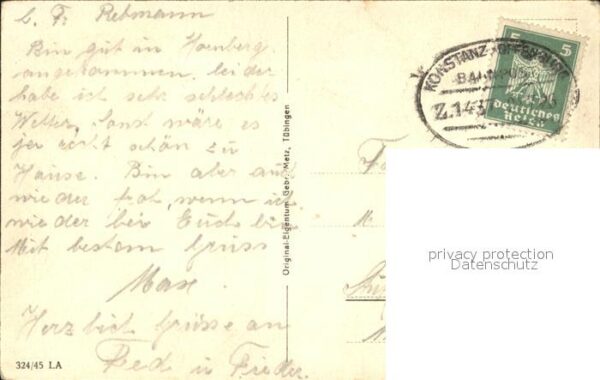 L. F. Rebmann
Bin gut in Hornberg
angekommen, leider
habe ich sehr schlechtes
Wetter, sonst wäre es
ja recht schön zu
Hause. Bin aber auch
wieder froh, wenn ich
wieder bei Euch bin
Mit bestem Gruss
Max.
Herzlich Grüsse an
Fed u Frieder.
324/45 LA
Original-Eigentum Gebr. Metz, Tübingen
KONSTANZ - OFFENBURG
BAHNPOST
Z.143
5 5
Deutsches
Reich
privacy protection
Datenschutz